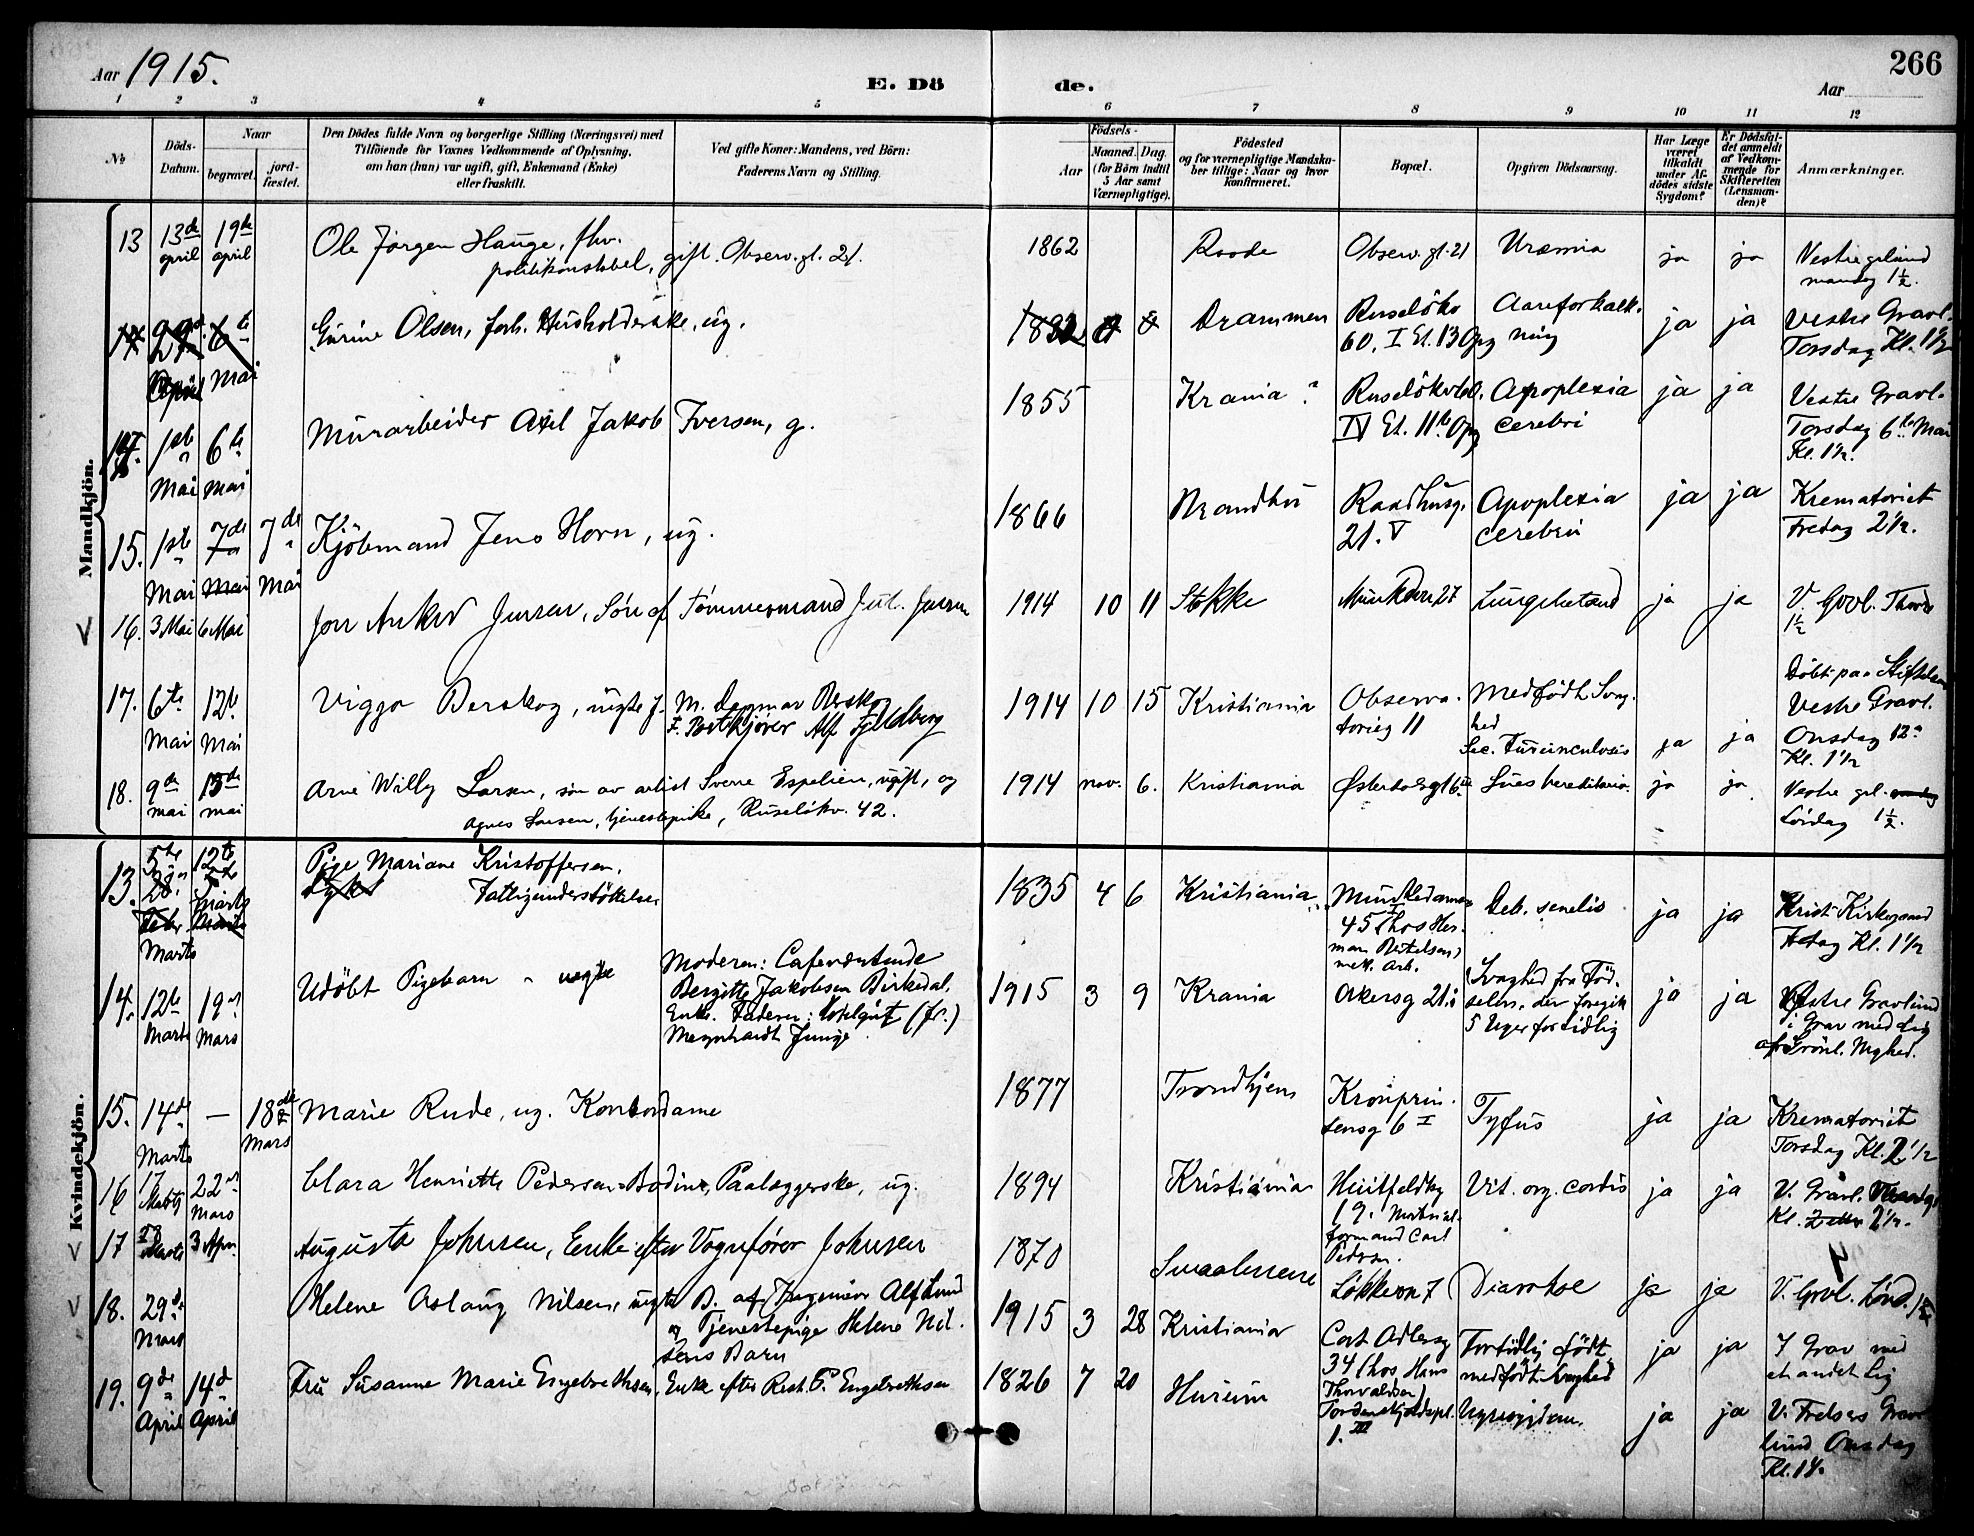 Aar 1915.
E. Dö de.
266
Aar
1 2 3 4 5 6 7 8 9 10 11 12
No
Döds-Datum.
Naar
begravet.
jord-fæstet.
Den Dödes fulde Navn og borgerlige Stilling (Næringsvei) med
Tilföiende for Voxnes Vedkommende af Oplysning,
om han (hun) var ugift, gift, Enkemand (Enke)
eller fraskilt.
Ved gifte Koner: Mandens, ved Börn:
Faderens Navn og Stilling.
Födsels-
Aar
Maaned. Dag.
(for Börn indtil
5 Aar samt
Værnepligtige).
Födested
og for værnepligtige Mandska-
ber tillige: Naar og hvor
konfirmeret.
Bopæl.
Opgiven Dödsaarsag.
Har Læge
været
tilkaldt
under Af-
dödes sidste
Sygdom?
Er Dödsfal-
det anmeldt
af Vedkom-
mende for
Skifteretten
(Lensman-
den)?
Anmærkninger.
Mandkjön.
13 13de april 19de april Ole Jørgen Hauge, fhv.
politikonstabel, gift. Observ. gt. 21.
1862 Observ. gt. 21 Uræmia ja ja Vestre gravlund
mandag 1½.
14 6te Mai Gurine Olsen, forh. Husholderske, ug.
Drammen Ruselökv 60. I Et. 13 Opg Aareforkalkning ja ja Vestre Gravl.
Torsdag Kl. 1½
14. 1ste Mai 6te Mai Murarbeider Axel Jakob Iversen, g.
1855 Krania? IV Et. 11te Opg Apoplexia cerebri ja ja Vestre Gravl.
Torsdag 6te Mai
Kl. 1½.
15. 1ste Mai 7de Mai 7de Mai Kjöbmand Jens Horn, ug.
1866 Raadhusg. 21. V Apoplexia cerebri ja ja Krematoriet
Fredag 2½.
16. 3 Mai 6 Mai Søn af Tømmermand
1914 10 11 Stokke ja ja V. Gravl.
1½
17. 6te Mai 12te Mai Viggo Berskog, uegte f. M. Dagmar Berskog
1914 10 15 Kristiania Observatorieg 11 Medfødt Svaghed
Sec. Furunculosis ja ja
Vestre Gravl.
Onsdag 12te
Kl. 1½
18. 9de mai mai Arne Willy Larsen, søn av artist Sverre Espelien, ugift, og
Agnes Larsen, tjenestepike, Ruseløkv. 42.
1914 nov. 6. Kristiania Lues hereditaria. ja ja Vestre grl.
Lördag 1½.
Kvindekjön.
13. 5te Marts 12te Marts Pige Mariane Kristoffersen.
Fattigunderstöttelse
1835 4 6 Kristiania Deb. senelis ja ja Krist. Kirkegaard
Kl. 1½
14. 12te Marts 19de Mars Udöbt Pigebarn uegte Moderen: Cafeværtinde
Bergitte Jakobsen Birkedal,
Enke. Faderen:
Meynhardt Junge.
1915 3 9 Krania Akersg 21. Svaghed fra Föd-
selen, der foregik
5 Uger for tidlig ja ja Vestre Gravlund
i Grav med Lig
15. 14de Marts — 18de Mars Marie Rude, ug. Kontordame
1877 Trondhjem Kronprin-
sensg 6 I Tyfus ja ja Krematoriet
Torsdag Kl. 2½
16 17 Marts 22de Mars Clara Henriette Pedersen-Bodine, Paalæggerske, ug.
1894 Kristiania Huitfeldtsg
19. Material-
formand Carl
Pedersen. Vit. org. cordis ja ja V. Gravl.
17 3 Apr. Augusta Johnsen, Enke efter Vognfører Johnsen
1870 Smaalenene Løkkevn 7 Diarrhoe ja ja V. Gravl. Lørd. 1½
18. 29de Mars Helene Aslaug Nilsen, uegte B. af Ingeniør Alf Lund
og Tjenestepige Helene Nil-
sens Barn
1915 3 28 Kristiania Cort Adlersg
34 (hos Hans
Thorvaldsen) For tidlig födt
medfödt svaghed ja ja I Grav med
et andet Lig
19. 9de April 14de April Fru Susanne Marie Engebrethsen, Enke efter Engebrethsen
1826 7 20 Hurum Tordenskjoldspl.
1. III Nyresygdom. ja ja V. Frelsers Grav
lund Onsdag
Kl. 1½.